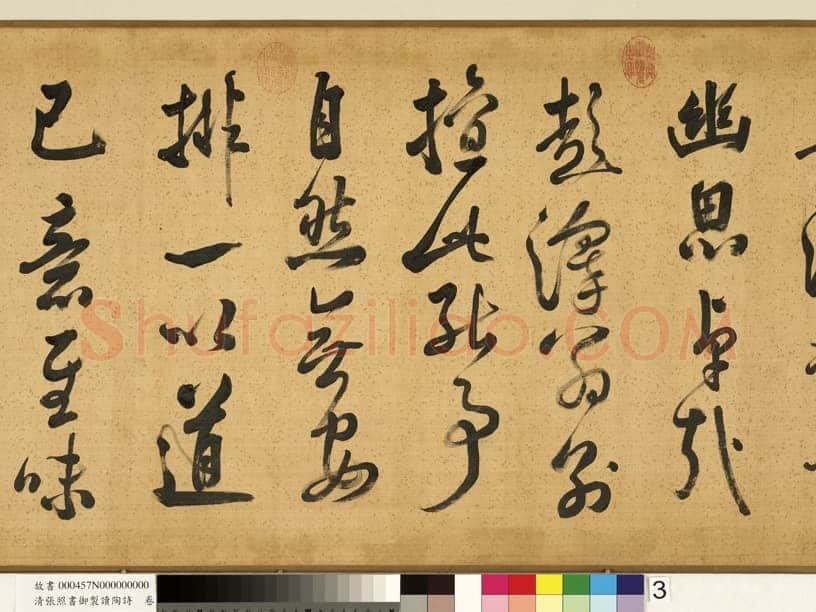 幽思卓哉
彭澤翁別
擅此能事
自然無安
排一以道
已意至味
Shufaziliao.COM
故書 000457N000000000
清張照書御製讀陶詩 卷
3